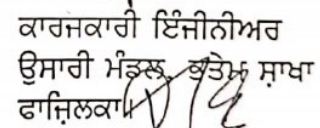 ਕਾਰਜਕਾਰੀ ਇੰਜੀਨੀਅਰ
ਉਸਾਰੀ ਮੰਡਲ, ਭਤੇਮ ਸ਼ਾਖਾ
ਫਾਜ਼ਿਲਕਾ।